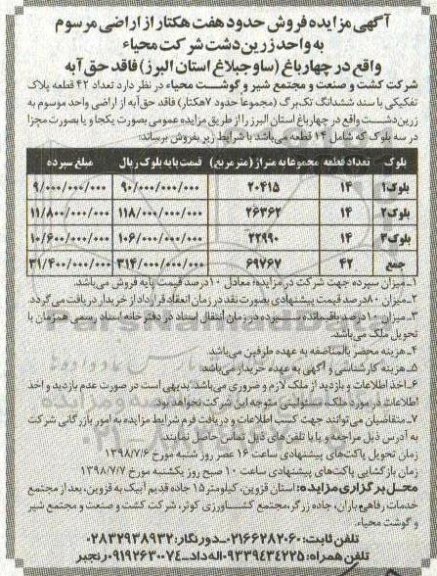 آگهی مزایده فروش حدود هفت هکتار از اراضی مرسوم
به واحد زرین دشت شرکت محیاء
واقع در چهارباغ (ساوجبلاغ استان البرز) فاقد حق آبه
شرکت کشت و صنعت و مجتمع شیر و گوشت محیاء در نظر دارد تعداد ۴۲ قطعه پلاک
تفکیکی با سند ششدانگ تک‌برگ (مجموعاً حدود ۷هکتار) فاقد حق‌آبه از اراضی واحد موسوم به
زرین‌دشت واقع در چهارباغ استان البرز را از طریق مزایده عمومی بصورت یکجا و یا بصورت مجزا
در سه بلوک که شامل ۱۴ قطعه می‌باشد با شرایط زیر بفروش برساند:
بلوک تعداد قطعه مجموعا به متراژ (متر مربع) قیمت پایه بلوک ریال مبلغ سپرده
بلوک۱ ۱۴ ۲۰۴۱۵ ۹۰/۰۰۰/۰۰۰/۰۰۰ ۹/۰۰۰/۰۰۰/۰۰۰
بلوک۲ ۱۴ ۲۶۳۶۲ ۱۱۸/۰۰۰/۰۰۰/۰۰۰ ۱۱/۸۰۰/۰۰۰/۰۰۰
بلوک۳ ۱۴ ۲۲۹۹۰ ۱۰۶/۰۰۰/۰۰۰/۰۰۰ ۱۰/۶۰۰/۰۰۰/۰۰۰
جمع ۴۲ ۶۹۷۶۷ ۳۱۴/۰۰۰/۰۰۰/۰۰۰ ۳۱/۴۰۰/۰۰۰/۰۰۰
۱ـ میزان سپرده جهت شرکت در مزایده؛ معادل ۱۰درصد قیمت پایه فروش می‌باشد.
۲ـ میزان ۸۰درصد قیمت پیشنهادی بصورت نقد در زمان انعقاد قرارداد از خریدار دریافت می‌گردد.
۳ـ میزان ۱۰درصد باقیمانده با سپرده در زمان انتقال اسناد در دفترخانه اسناد رسمی همزمان با
تحویل ملک می‌باشد.
۴ـ هزینه محضر بالمناصفه به عهده طرفین می‌باشد.
۵ـ هزینه کارشناسی و آگهی به عهده خریدار می‌باشد.
۶ـ اخذ اطلاعات و بازدید از ملک لازم و ضروری می‌باشد بدیهی است در صورت عدم بازدید و اخذ
اطلاعات در مورد ملک مسئولیتی متوجه این شرکت نخواهد بود.
۷ـ متقاضیان می‌توانند جهت کسب اطلاعات و دریافت فرم شرایط مزایده به امور بازرگانی شرکت
به آدرس ذیل مراجعه و یا با تلفن‌های ذیل تماس حاصل نمایند.
زمان تحویل پاکت‌های پیشنهادی ساعت ۱۶ عصر روز شنبه مورخ ۱۳۹۸/۷/۶
زمان بازگشایی پاکت‌های پیشنهادی ساعت ۱۰ صبح روز یکشنبه مورخ ۱۳۹۸/۷/۷
محل برگزاری مزایده: استان قزوین، کیلومتر ۱۵ جاده قدیم آبیک به قزوین، بعد از مجتمع
خدمات رفاهی باران، جاده زرگر، مجتمع کشاورزی کوثر، شرکت کشت و صنعت و مجتمع شیر
و گوشت محیاء.
تلفن ثابت: ۰۲۱۶۶۲۸۲۰۶۰ـدورنگار: ۰۲۸۳۲۹۳۸۹۳۲
تلفن همراه: ۰۹۳۳۹۴۳۴۲۲۵اله‌دادـ ۰۹۱۹۲۶۳۰۰۷۴رنجبر
ParsNamadData